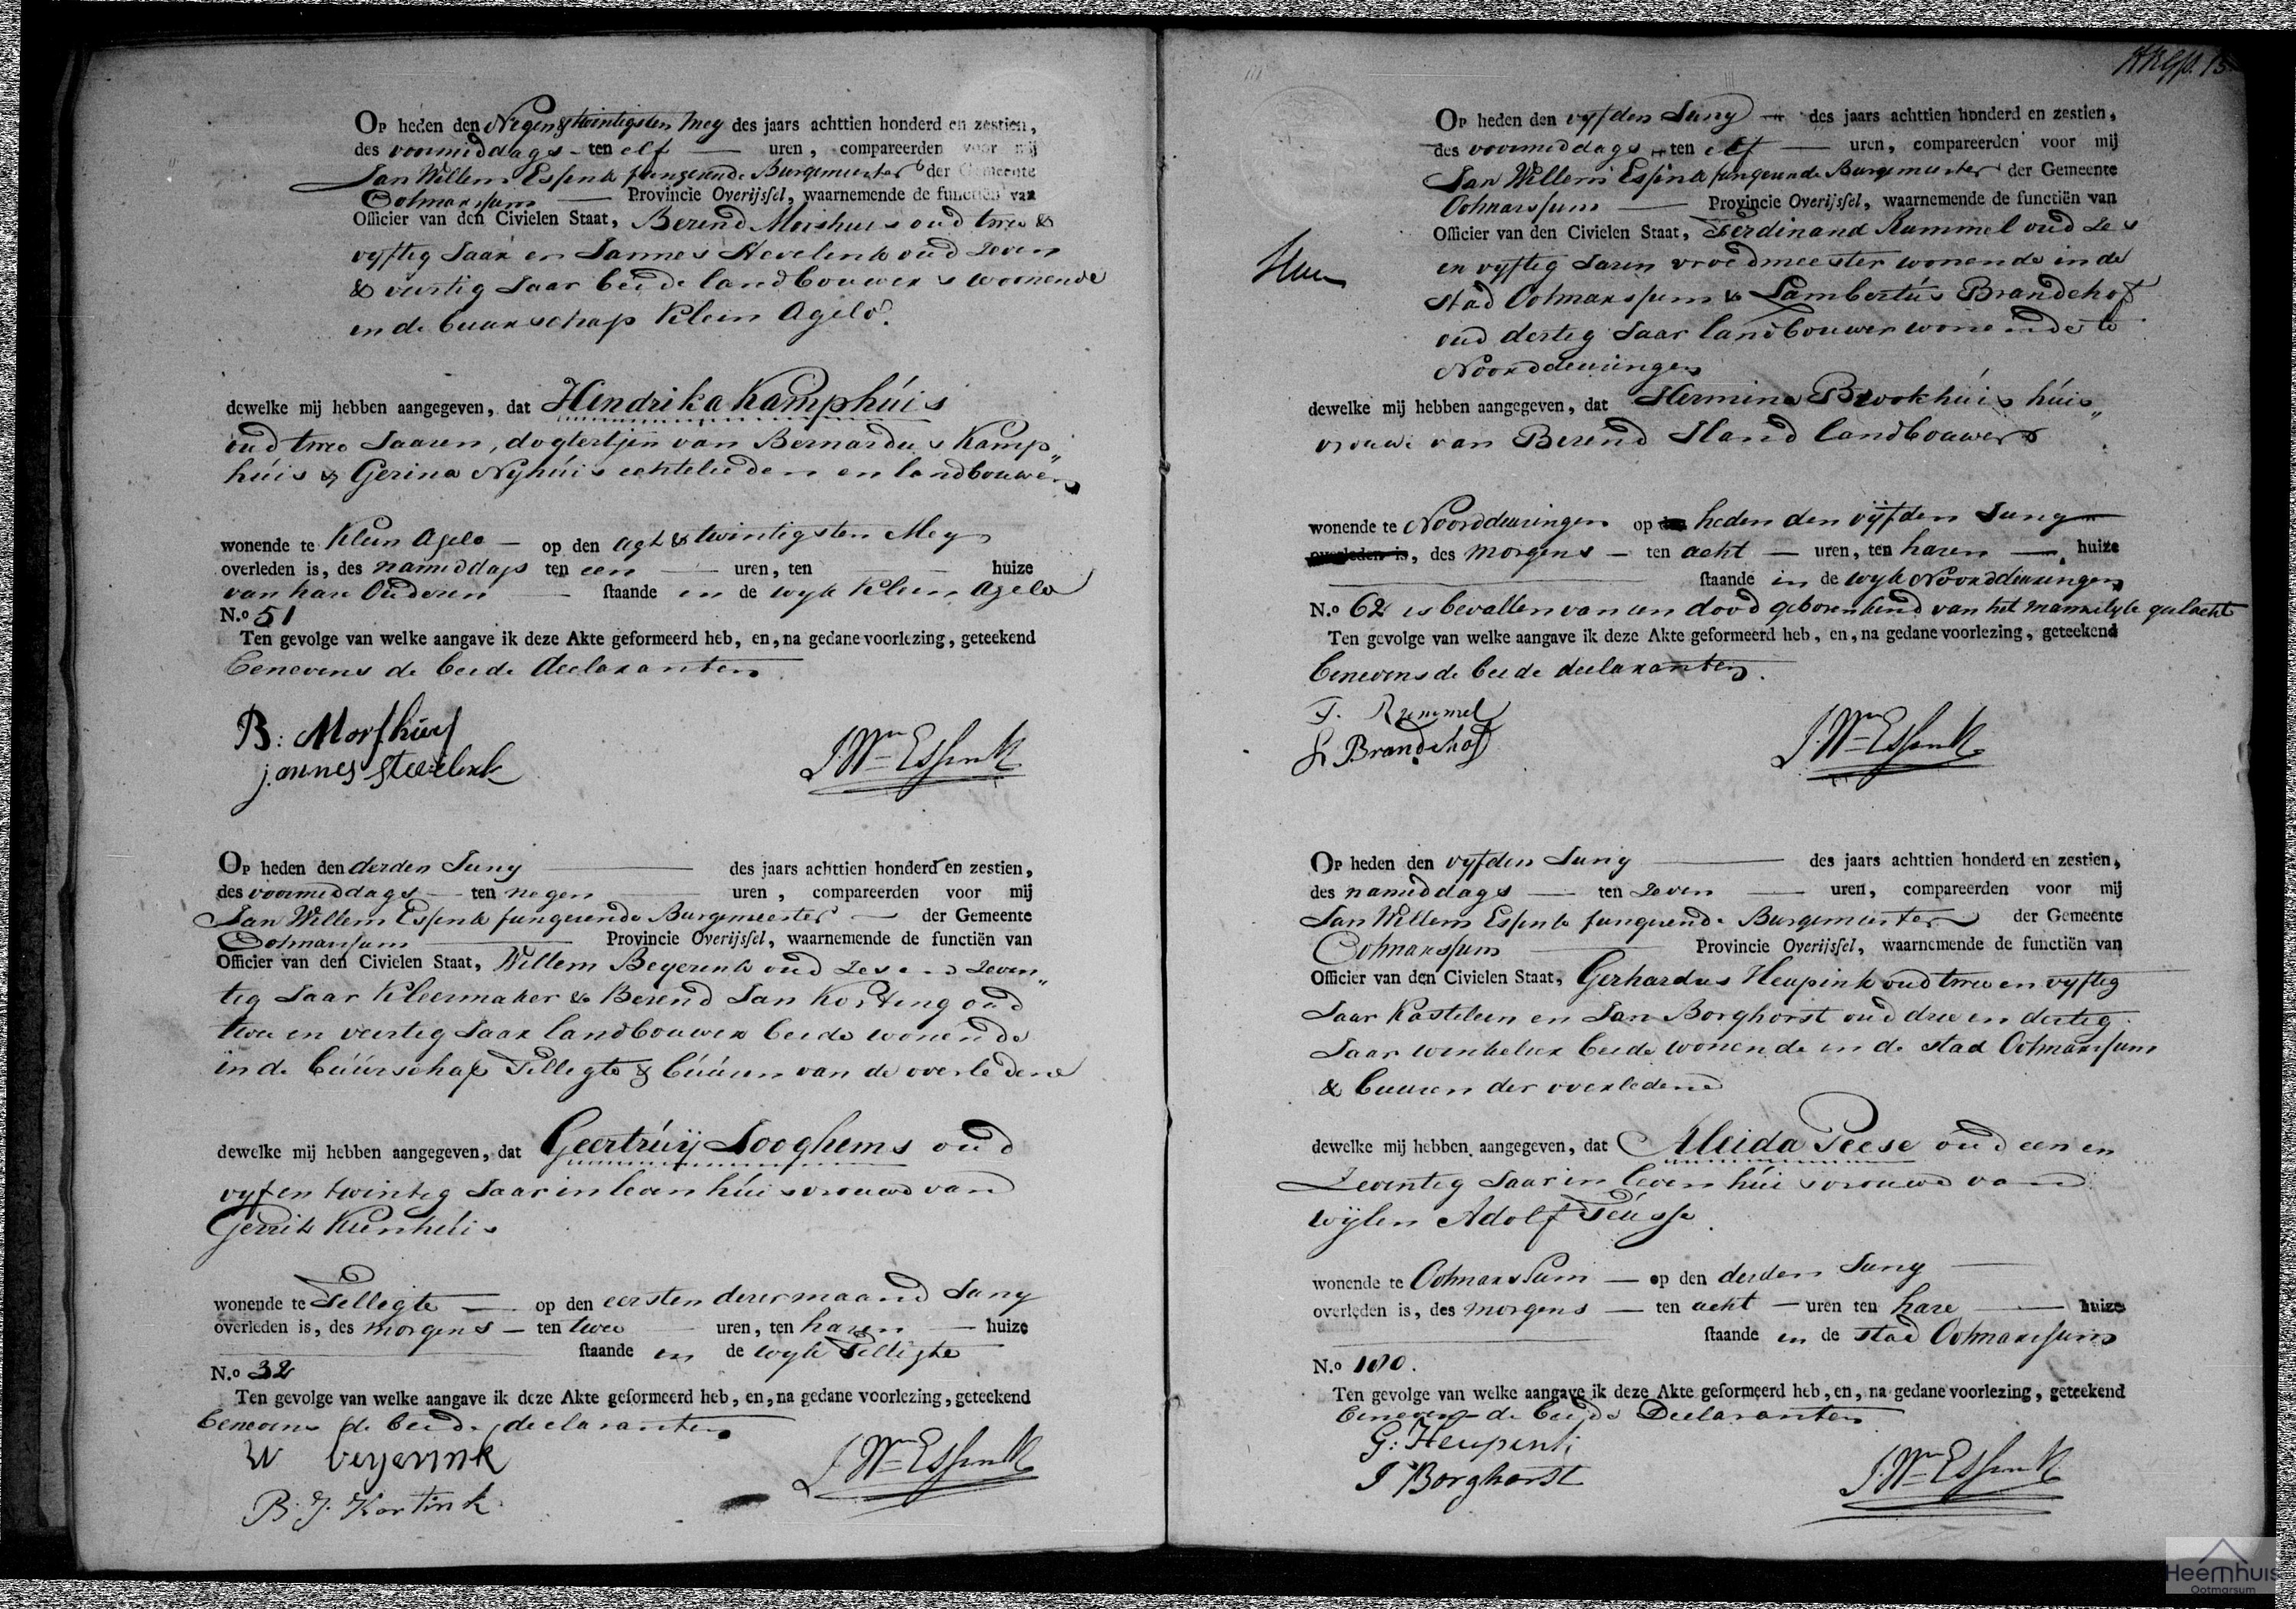 Op heden den Negen & twintigsten Mey des jaars achttien honderd en zestien,
des voormiddags - ten elf — uren, compareerden voor mij
Jan Willem Essink fungerende Burgemeester der Gemeente
Ootmarssum — Provincie Overijssel, waarnemende de functiën van
Officier van den Civielen Staat, Berend Morshuis oud twee &
vyftig Jaar en Jannes Stevelink oud zeven
& veertig Jaar beide landbouwers woonende
in de buurschap Klein Agelo.
dewelke mij hebben aangegeven, dat Hendrika Kamphúis
oud twee Jaaren, dogtertjen van Bernardus Kamp„
húis & Gerina Nyhúis echtelieden en landbouwers
wonende te Klein Agelo — op den agt & twintigsten Mey
overleden is, des namiddags ten een — uren, ten — huize
van hare Ouderen — staande in de wyk Klein Agelo
N.o 51
Ten gevolge van welke aangave ik deze Akte geformeerd heb, en, na gedane voorlezing, geteekend
benevens de beide declaranten
B: Morshuis
jannes stevelink
J. Wm Essink
Op heden den derden Juny — des jaars achttien honderd en zestien,
des voormiddags — ten negen — uren, compareerden voor mij
Jan Willem Essink fungerende Burgemeester — der Gemeente
Ootmarssum — Provincie Overijssel, waarnemende de functiën van
Officier van den Civielen Staat, Willem Beyerink oud zes en zeven„
tig Jaar Kleermaker & Berend Jan Korting oud
twee en veertig Jaar landbouwer beide wonende
in de búúrschap Tilligte & búúren van de overledene
dewelke mij hebben aangegeven, dat Geertrúij Looghems oud
vyf en twintig Jaar in leven húisvrouwe van
Gerrit Kienhúis
wonende te Tilligte — op den eersten dezer maand Juny
overleden is, des morgens — ten twee — uren, ten haren — huize
staande in de wyk Tilligte
N.o 32
Ten gevolge van welke aangave ik deze Akte geformeerd heb, en, na gedane voorlezing, geteekend
benevens de beide declaranten
W beyerink
B. J. Kortink
J. Wm Essink
Op heden den vyfden Juny — des jaars achttien honderd en zestien,
des voormiddags — ten elf — uren, compareerden voor mij
Jan Willem Essink fungerende Burgemeester der Gemeente
Ootmarssum — Provincie Overijssel, waarnemende de functiën van
Officier van den Civielen Staat, Ferdinand Rummel oud zes
en vyftig Jaren vroedmeester wonende in de
stad Ootmarssum & Lambertús Brandehof
oud dertig Jaar landbouwer wonende te
Noorddeuringen
dewelke mij hebben aangegeven, dat Hermina Brookhúis húis„
vrouwe van Berend Stand landbouwers
wonende te Noorddeuringen op den heden den vijfden Juny
overleden is, des morgens — ten acht — uren, ten haren — huize
staande in de wyk Noorddeuringen
N.o 62 is bevallen van een dood geboren kind van het mannelyk geslacht
Ten gevolge van welke aangave ik deze Akte geformeerd heb, en, na gedane voorlezing, geteekend
benevens de beide declaranten.
F. Rummel
L Brandehof
J. Wm Essink
Op heden den vyfden Juny — des jaars achttien honderd en zestien,
des namiddags — ten zeven — uren, compareerden voor mij
Jan Willem Essink fungerende Burgemeester der Gemeente
Ootmarssum — Provincie Overijssel, waarnemende de functiën van
Officier van den Civielen Staat, Gerhardus Heupink oud twee en vyftig
Jaar Kastelein en Jan Borghorst oud drie en dertig
Jaar winkelier beide wonende in de stad Ootmarssum
& buuren der overledene
dewelke mij hebben aangegeven, dat Aleida Peese oud een en
Zeventig Jaar in leven húisvrouwe van
wijlen Adolf Teússe.
wonende te Ootmarssum — op den derden Juny —
overleden is, des morgens — ten acht — uren ten hare — huize
staande in de stad Ootmarssum
N.o 100.
Ten gevolge van welke aangave ik deze Akte geformeerd heb, en, na gedane voorlezing, geteekend
benevens de beide Declaranten
G: Heupink
J Borghorst
J. Wm Essink
Heemhuis
Ootmarsum